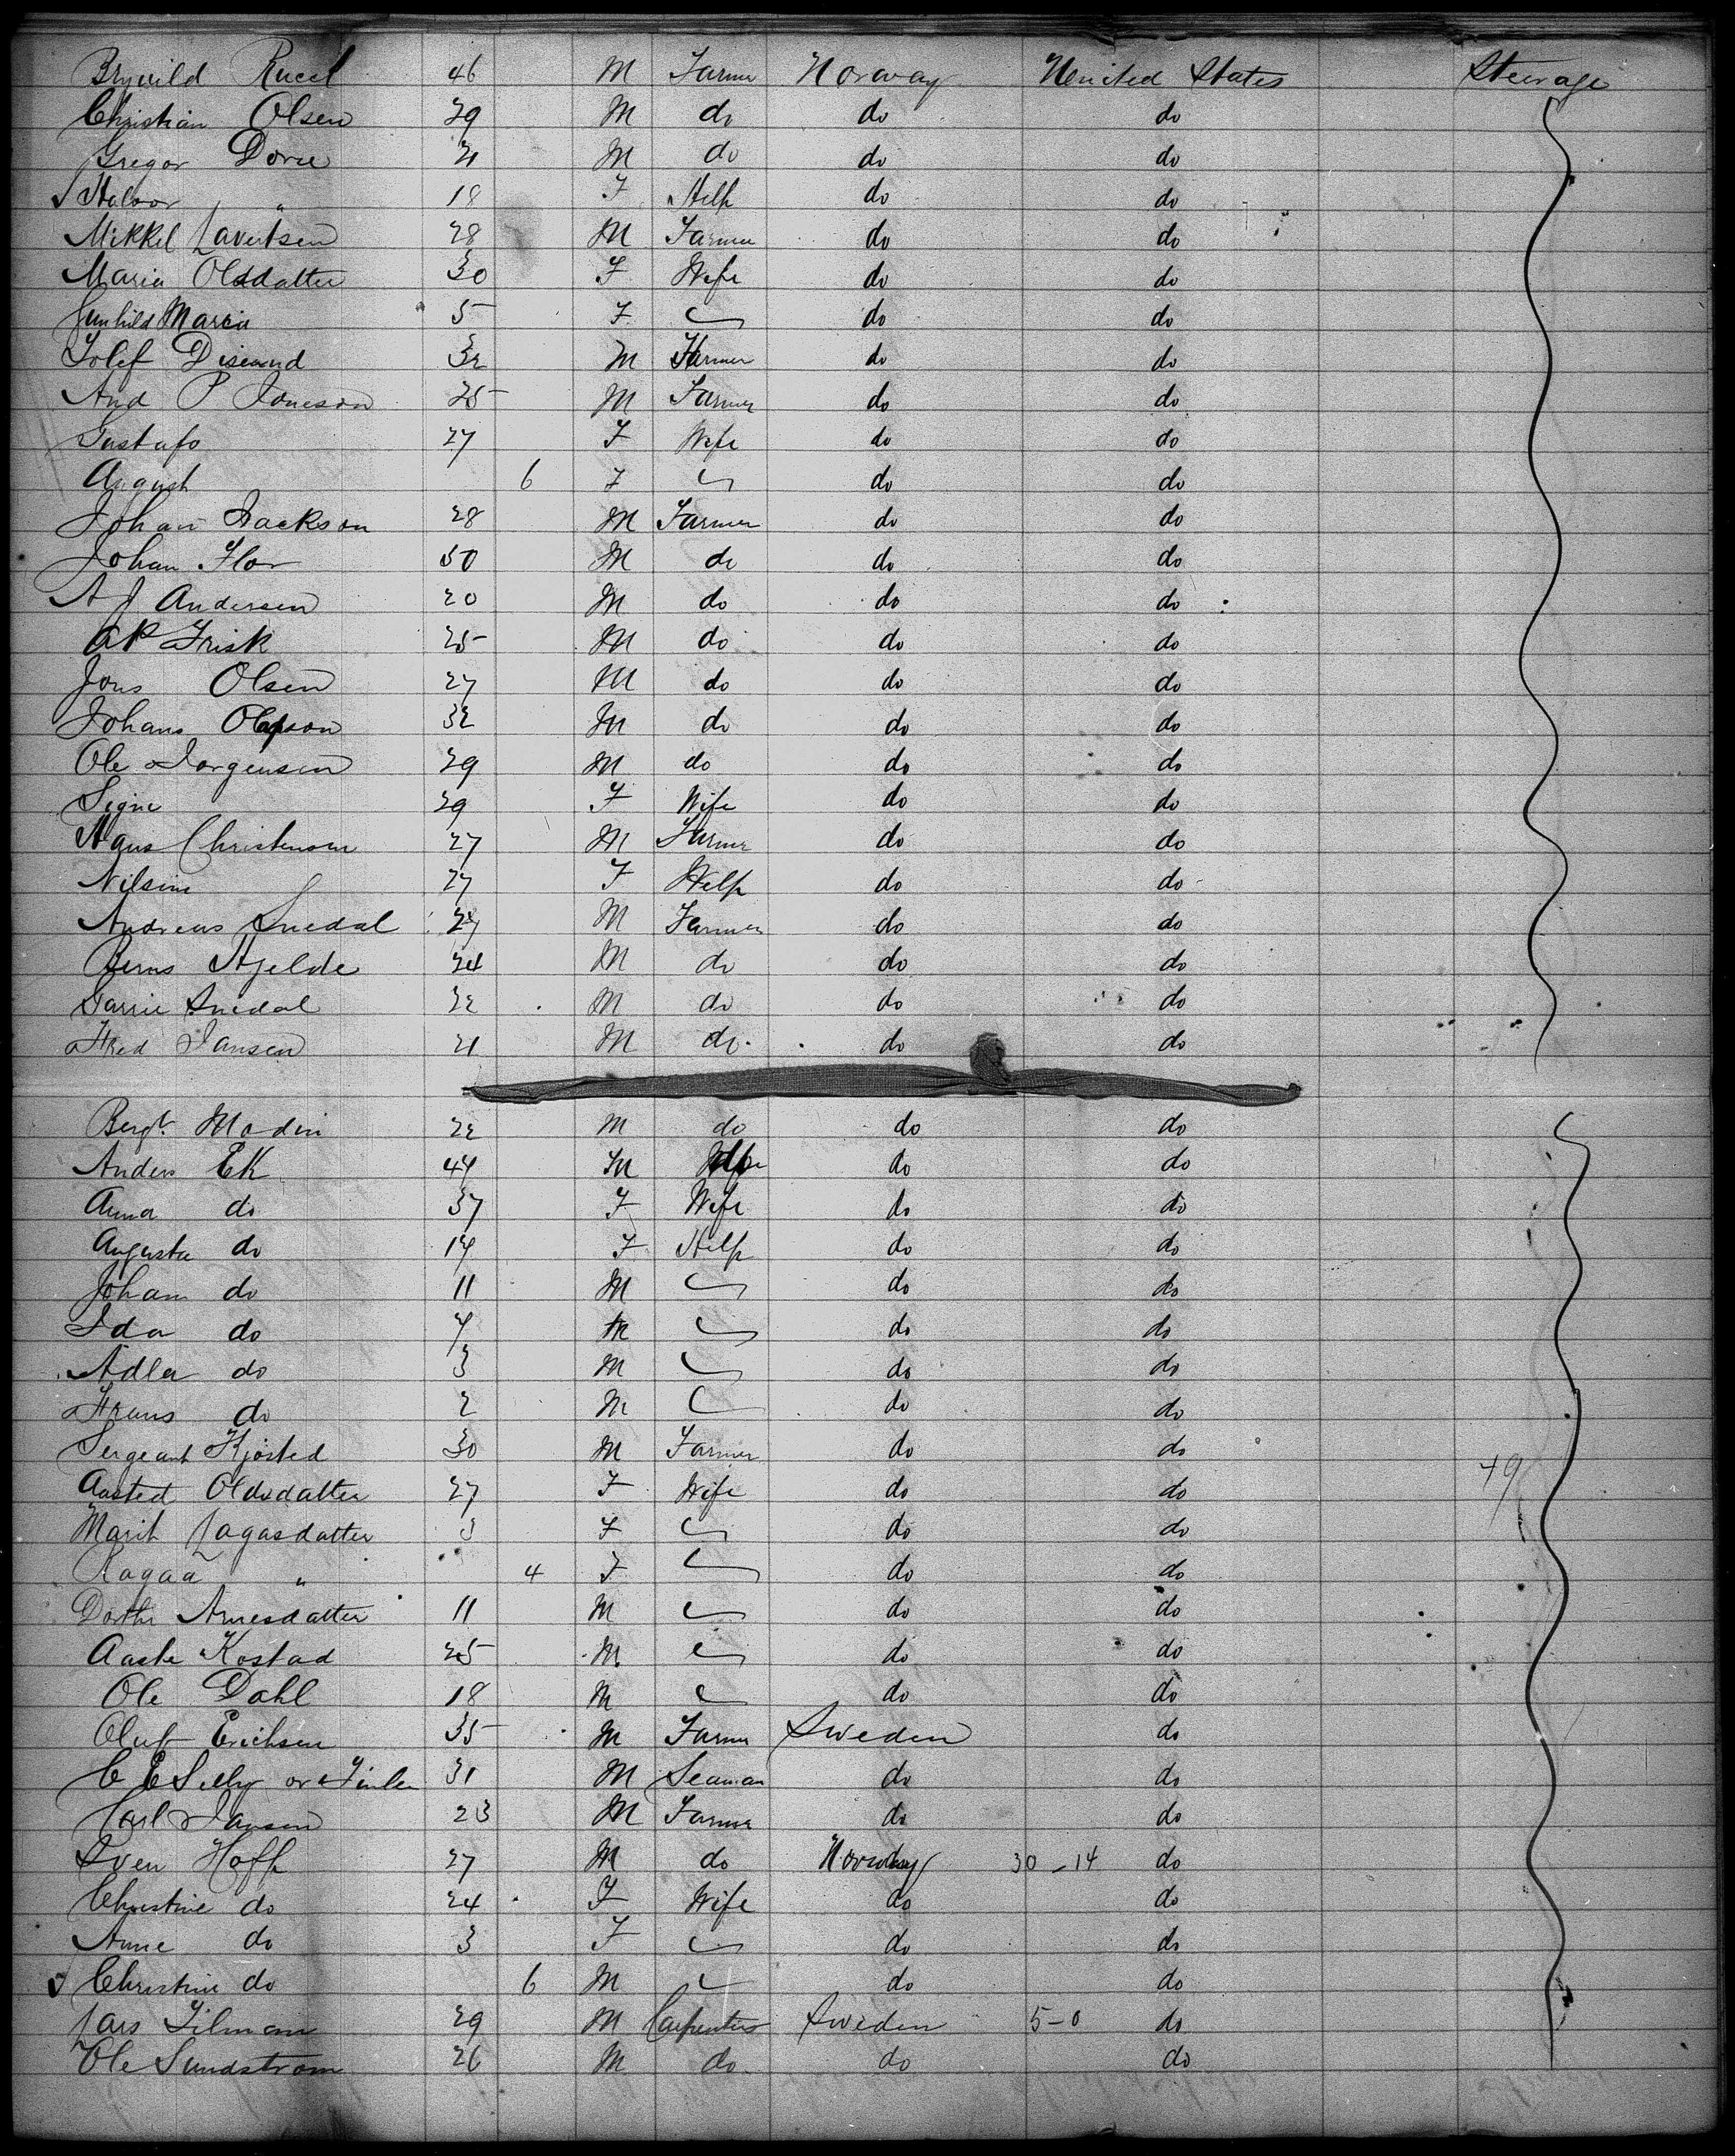 Bryuild Rucel 46 M Farmer Norway Uenited States Steerage
Christian Olsen 29 M do do do
Gregor Dovre 21 M do do do
Halvor " 18 F Help do do
Mikkel Lavertsen 28 M Farmer do do
Maria Olsdatter 30 F Wife do do
Gunhild Maria 5 F do do
Tolef Diseund 32 M Farmer do do
And P Joneson 25 M Farmer do do
Gustafo 27 F Wife do do
August 6 F do do
Johan Isackson 28 M Farmer do do
Johan Flor 50 M do do do
A J Andersen 20 M do do do
A P Frisk 25 M do do do
Jons Olsen 27 M do do do
Johans Olafson 32 M do do do
Ole Jorgensen 29 M do do do
Signe 29 F Wife do do
Hans Christensen 27 M Farmer do do
Nilsine 27 F Help do do
Andreas Snedal 27 M Farmer do do
Berns Hjelde 24 M do do do
Garrie Snedal 22 M do do do
Fred Jansen 21 M do do do
Bergt Modin 22 M do do do
Anders EK 44 M do do
Anna do 37 F Wife do do
Augusta do 14 F Help do do
Johan do 11 M do do
Ida do 7 M do do
Adla do 3 M do do
Frans do 2 M do do
Sergeant Kjosted 30 M Farmer do do 49
Aasted Oldsdatter 27 F Wife do do
Marit Lagasdatter 3 F do do
Ragaa " 4 F do do
Dorthe Arnesdatter 11 M do do
Aaste Kostad 25 M do do
Ole Dahl 18 M do do
Oluf Erichsen 35 M Farmer Sweden do
C E Selby or 31 M Seaman do do
Carl Jansen 23 M Farmer do do
Sven Hoff 27 M do Norway 30-14 do
Christine do 24 F Wife do do
Anne do 3 F do do
Christine do 6 M do do
Lars Tilman 29 M Carpenter Sweden 5-0 do
Ole Sundstrom 26 M do do do